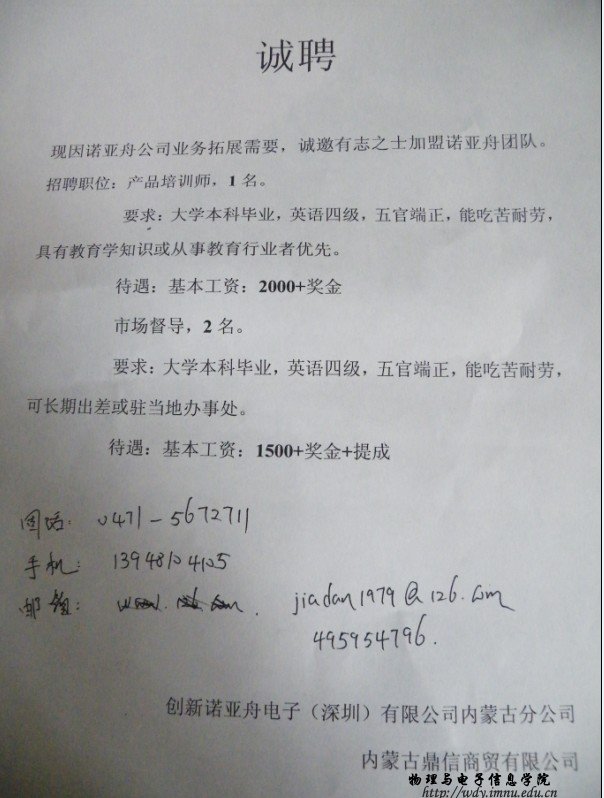 诚聘
现因诺亚舟公司业务拓展需要，诚邀有志之士加盟诺亚舟团队。
招聘职位：产品培训师，1名。
要求：大学本科毕业，英语四级，五官端正，能吃苦耐劳，
具有教育学知识或从事教育行业者优先。
待遇：基本工资：2000+奖金
市场督导，2名。
要求：大学本科毕业，英语四级，五官端正，能吃苦耐劳，
可长期出差或驻当地办事处。
待遇：基本工资：1500+奖金+提成
固话：0471-5672711
手机：13948104105
邮箱：www.126.com. jiadan1979@126.com
495954796.
创新诺亚舟电子（深圳）有限公司内蒙古分公司
内蒙古鼎信商贸有限公司
物理与电子信息学院
http://wdy.imnu.edu.cn